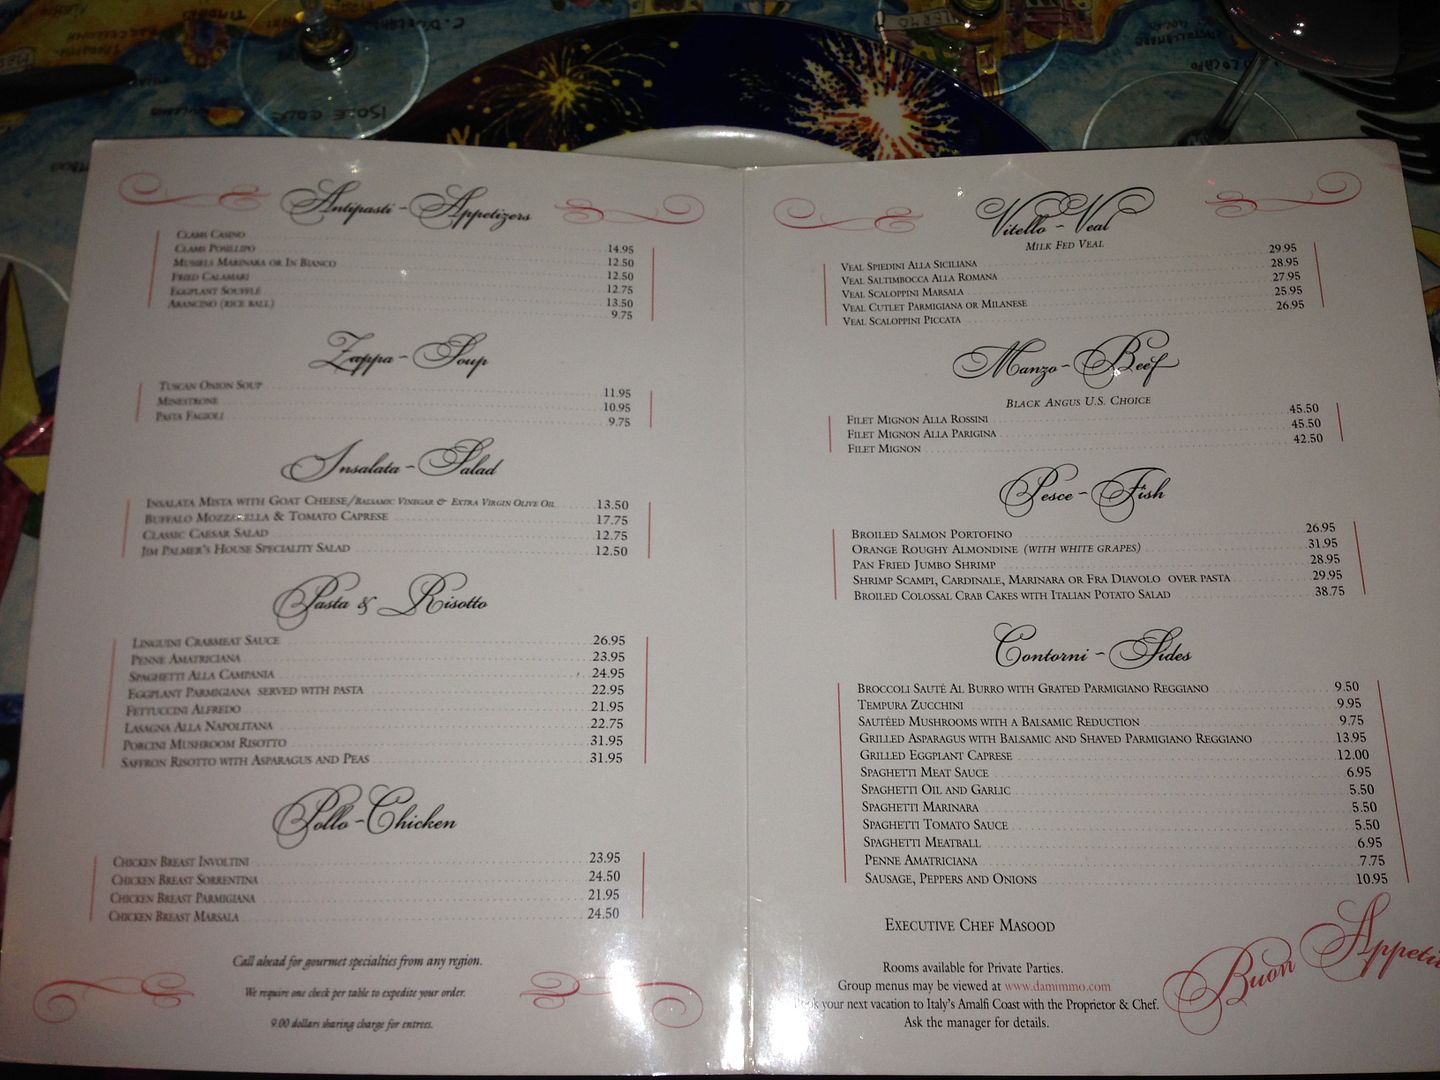 Antipasti ~ Appetizers
Clams Casino 14.95
Clams Posillipo 12.50
Mussels Marinara or In Bianco 12.50
Fried Calamari 12.75
Eggplant Soufflé 13.50
Arancino (rice ball) 9.75
Zuppa ~ Soup
Tuscan Onion Soup 11.95
Minestrone 10.95
Pasta Fagioli 9.75
Insalata ~ Salad
Insalata Mista with Goat Cheese/Balsamic Vinegar & Extra Virgin Olive Oil 13.50
Buffalo Mozzarella & Tomato Caprese 17.75
Classic Caesar Salad 12.75
Jim Palmer's House Speciality Salad 12.50
Pasta & Risotto
Linguini Crabmeat Sauce 26.95
Penne Amatriciana 23.95
Spaghetti Alla Campania 24.95
Eggplant Parmigiana served with pasta 22.95
Fettuccini Alfredo 21.95
Lasagna Alla Napolitana 22.75
Porcini Mushroom Risotto 31.95
Saffron Risotto with Asparagus and Peas 31.95
Pollo ~ Chicken
Chicken Breast Involtini 23.95
Chicken Breast Sorrentina 24.50
Chicken Breast Parmigiana 21.95
Chicken Breast Marsala 24.50
Call ahead for gourmet specialties from any region.
We require one check per table to expedite your order.
9.00 dollars sharing charge for entrees.
Vitello ~ Veal
Milk Fed Veal
Veal Spiedini Alla Siciliana 29.95
Veal Saltimbocca Alla Romana 28.95
Veal Scaloppini Marsala 27.95
Veal Cutlet Parmigiana or Milanese 25.95
Veal Scaloppini Piccata 26.95
Manzo ~ Beef
Black Angus U.S. Choice
Filet Mignon Alla Rossini 45.50
Filet Mignon Alla Parigina 45.50
Filet Mignon 42.50
Pesce ~ Fish
Broiled Salmon Portofino 26.95
Orange Roughy Almondine (with white grapes) 31.95
Pan Fried Jumbo Shrimp 28.95
Shrimp Scampi, Cardinale, Marinara or Fra Diavolo over pasta 29.95
Broiled Colossal Crab Cakes with Italian Potato Salad 38.75
Contorni ~ Sides
Broccoli Sauté Al Burro with Grated Parmigiano Reggiano 9.50
Tempura Zucchini 9.95
Sautéed Mushrooms with a Balsamic Reduction 9.75
Grilled Asparagus with Balsamic and Shaved Parmigiano Reggiano 13.95
Grilled Eggplant Caprese 12.00
Spaghetti Meat Sauce 6.95
Spaghetti Oil and Garlic 5.50
Spaghetti Marinara 5.50
Spaghetti Tomato Sauce 5.50
Spaghetti Meatball 6.95
Penne Amatriciana 7.75
Sausage, Peppers and Onions 10.95
Executive Chef Masood
Rooms available for Private Parties.
Group menus may be viewed at www.damimmo.com
your next vacation to Italy's Amalfi Coast with the Proprietor & Chef.
Ask the manager for details.
Buon Appetit